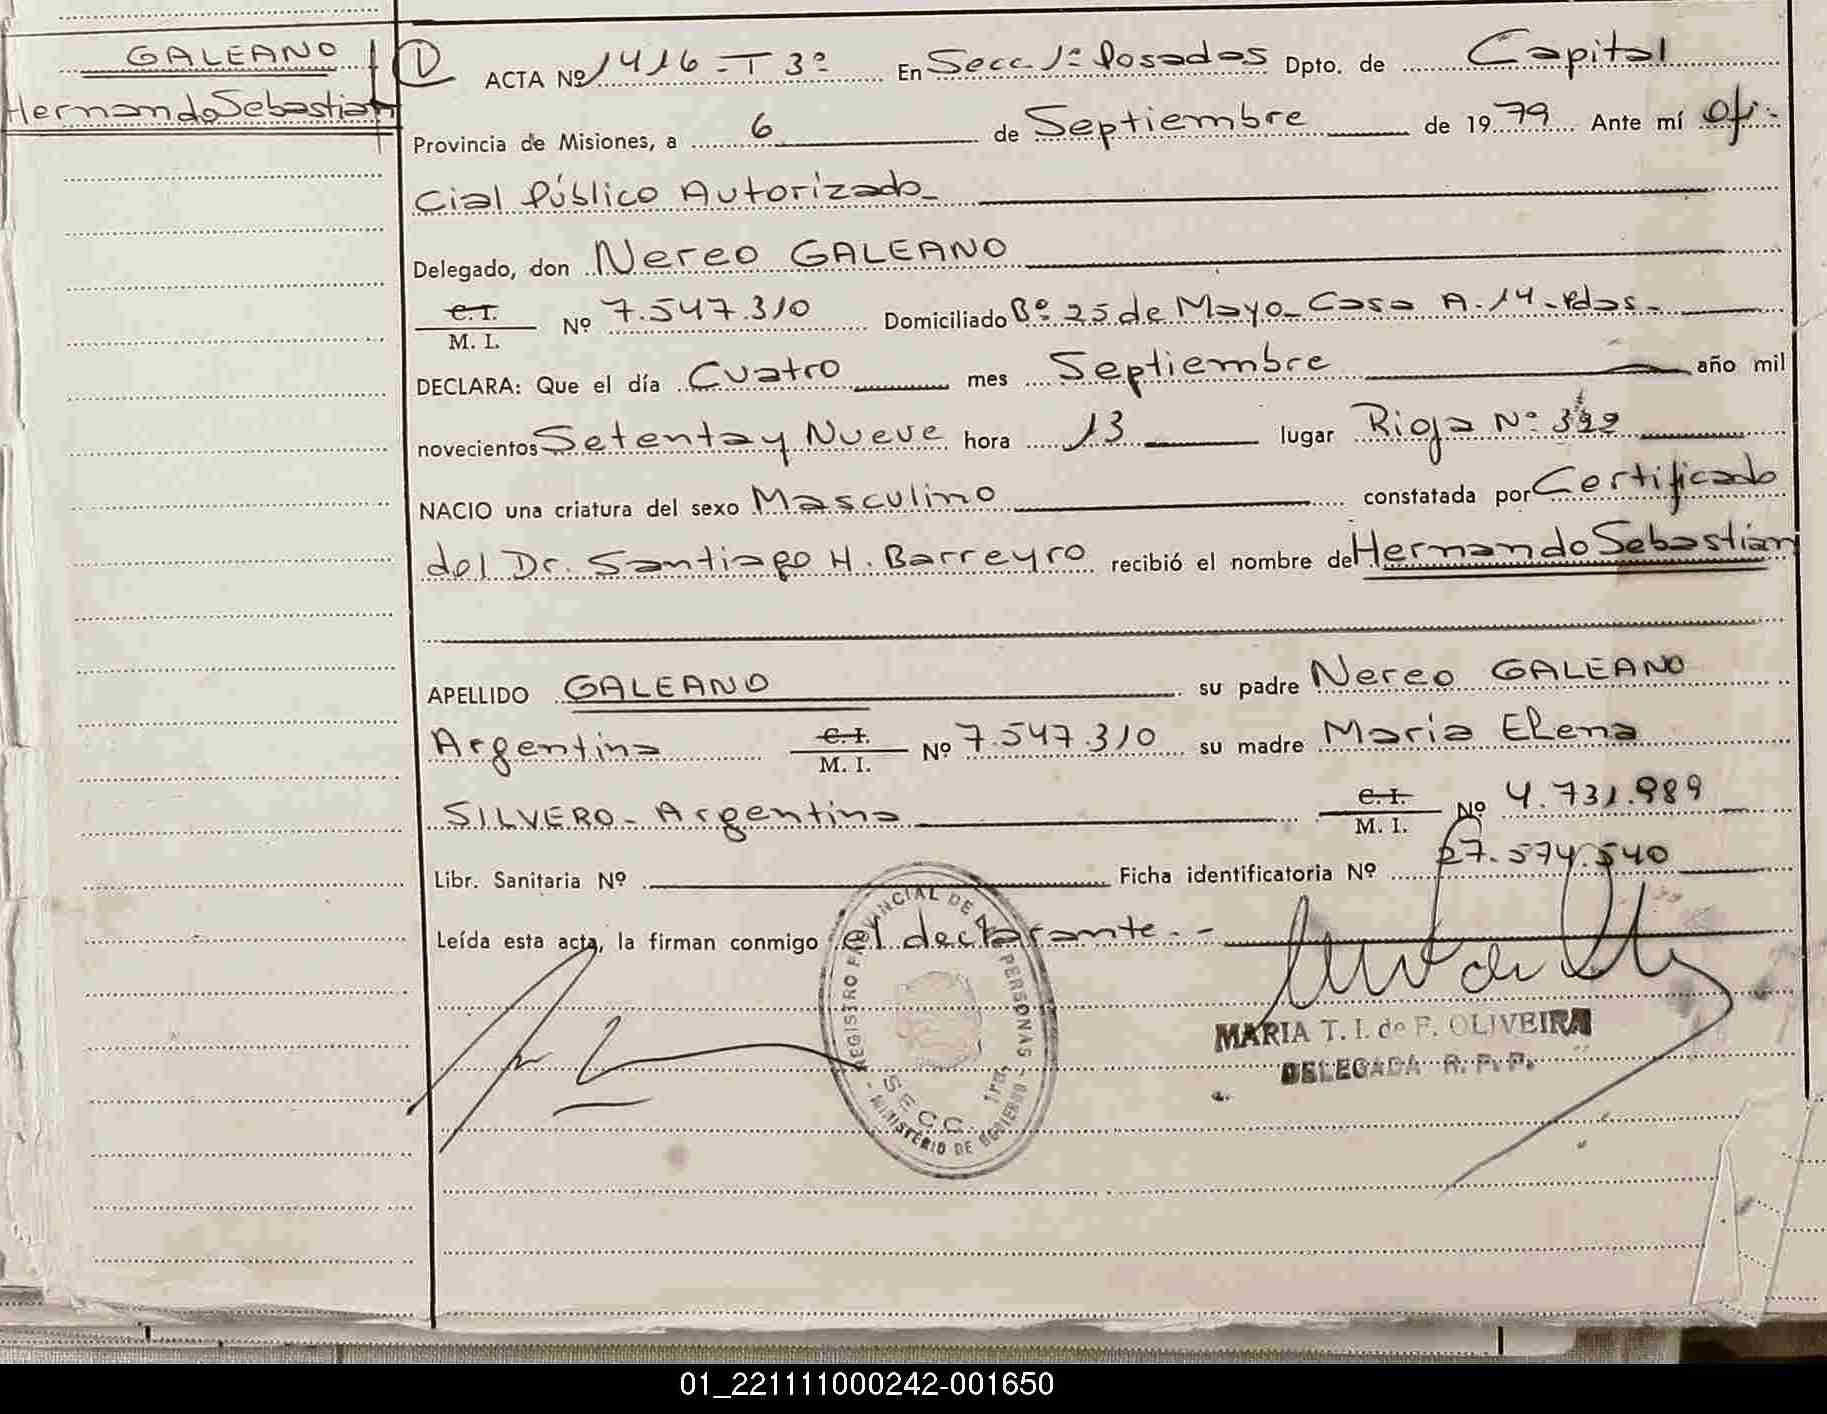 GALEANO
Hernando Sebastian
D ACTA Nº 1416-T 3º En Secc. 1º Posadas Dpto. de Capital
Provincia de Misiones, a 6 de Septiembre de 1979 Ante mí Ofi-
cial Público Autorizado
Delegado, don Nereo GALEANO
C.I.
M. I. Nº 7.547.310 Domiciliado Bº 25 de Mayo - Casa A-14-Pdas-
DECLARA: Que el día Cuatro mes Septiembre año mil
novecientos Setenta y Nueve hora 13 lugar Rioja Nº
NACIO una criatura del sexo Masculino constatada por Certificado
del Dr. Santiago H. Barreyro recibió el nombre de Hernando Sebastian
APELLIDO GALEANO su padre Nereo GALEANO
Argentina C.I.
M. I. Nº 7.547.310 su madre Maria Elena
SILVERO - Argentina C.I.
M. I. Nº 4.731.989
Libr. Sanitaria Nº Ficha identificatoria Nº 27.574.540
Leída esta acta, la firman conmigo el declarante.-
REGISTRO PROVINCIAL DE LAS PERSONAS
SECC. 1ra.
MINISTERIO DE GOBIERNO
MARIA T. I. de F. OLIVEIRA
DELEGADA R. P. P.
01_221111000242-001650